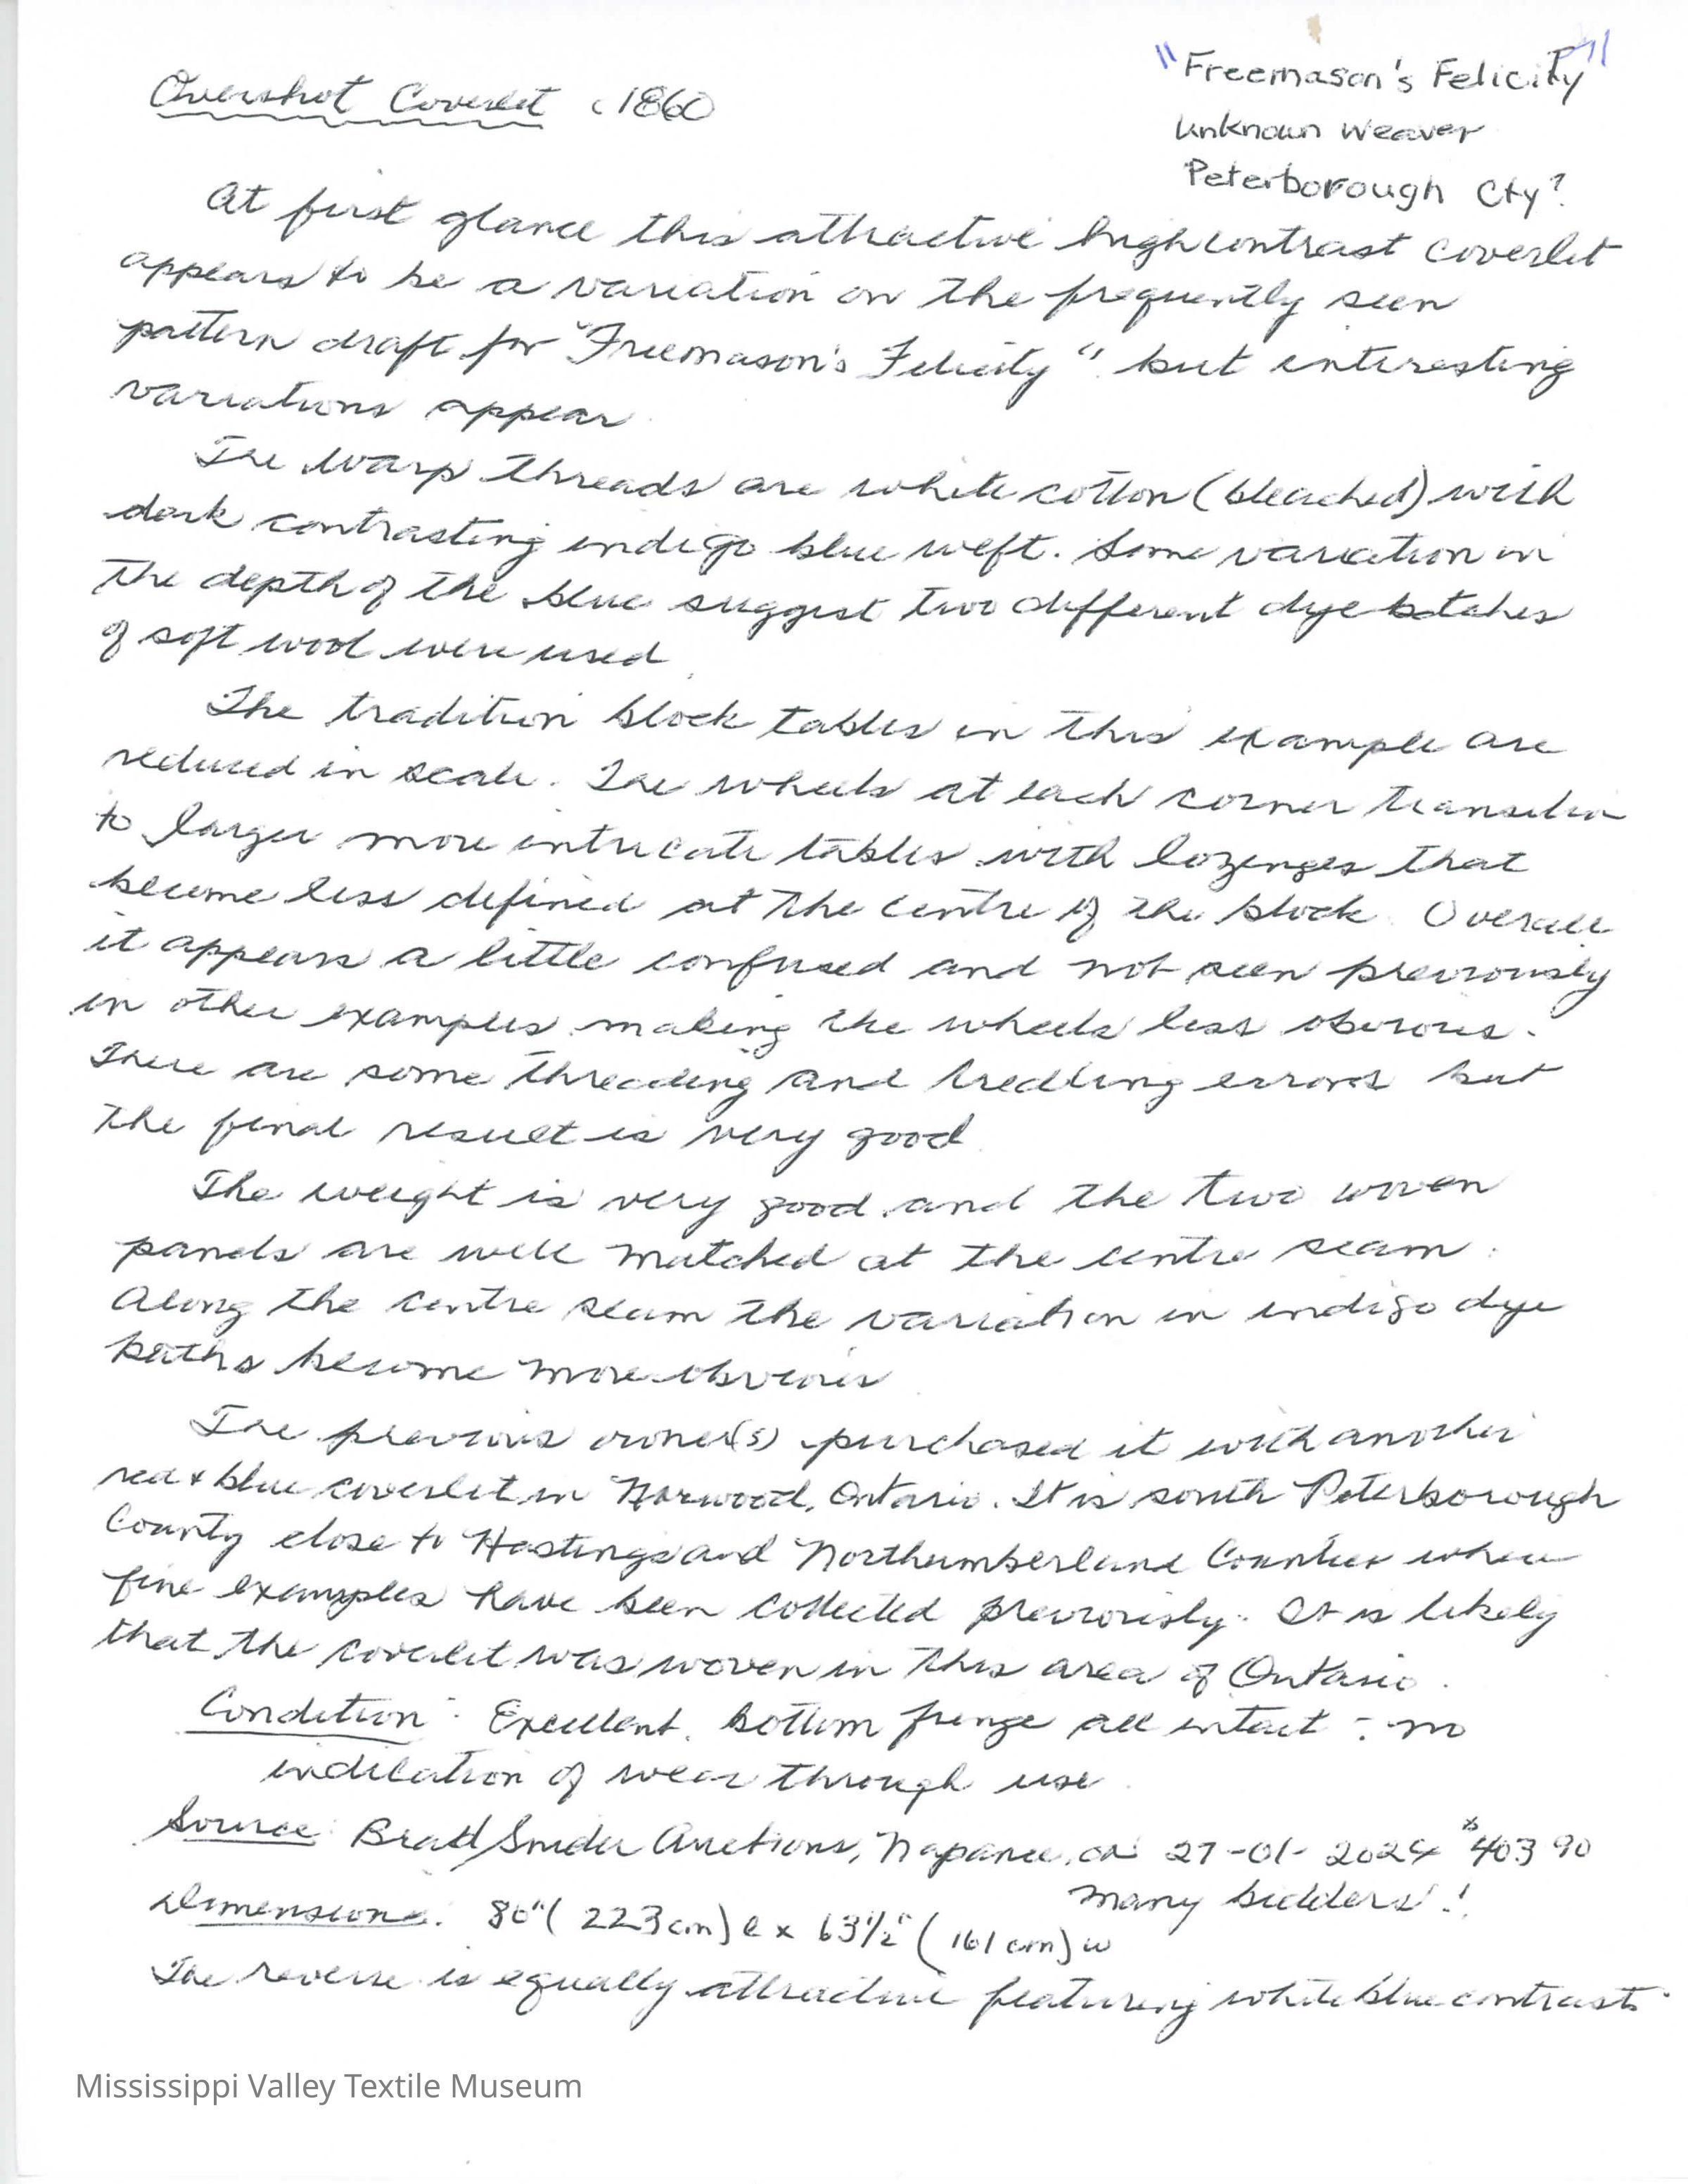 Overshot Coverlet c 1860
"Freemason's Felicity"
Unknown Weaver
Peterborough Cty?
At first glance this attractive high contrast coverlet
appears to be a variation on the frequently seen
pattern draft for "Freemason's Felicity" but interesting
variations appear
The warp threads are white cotton (bleached) with
dark contrasting indigo blue weft. Some variation in
the depth of the blue suggest two different dye batches
of soft wool were used
The tradition block tables in this example are
reduced in scale. The wheels at each corner transition
to larger more intricate tables with lozenges that
become less defined at the centre of the block. Overall
it appears a little confused and not seen previously
in other examples making the wheels less obvious.
There are some threading and tredling errors but
the final result is very good
The weight is very good and the two woven
panels are well matched at the centre seam.
Along the centre seam the variation in indigo dye
baths become more obvious
The previous owner(s) purchased it with another
red & blue coverlet in Norwood, Ontario. It is south Peterborough
County close to Hastings and Northumberland Counties where
fine examples have been collected previously. It is likely
that the coverlet was woven in this area of Ontario.
Condition: Excellent. bottom fringe all intact - no
indication of wear through use
Source: Brad Snider Auctions, Napanee, On 27-01-2024 $403 90
many bidders!
Dimensions: 86" (223 cm) l x 63 1/2" (161 cm) w
The reverse is equally attractive featuring white blue contrasts.
Mississippi Valley Textile Museum